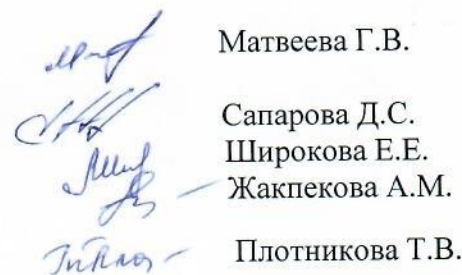 Матвеева Г.В.
Сапарова Д.С.
Широкова Е.Е.
Жакпекова А.М.
Плотникова Т.В.